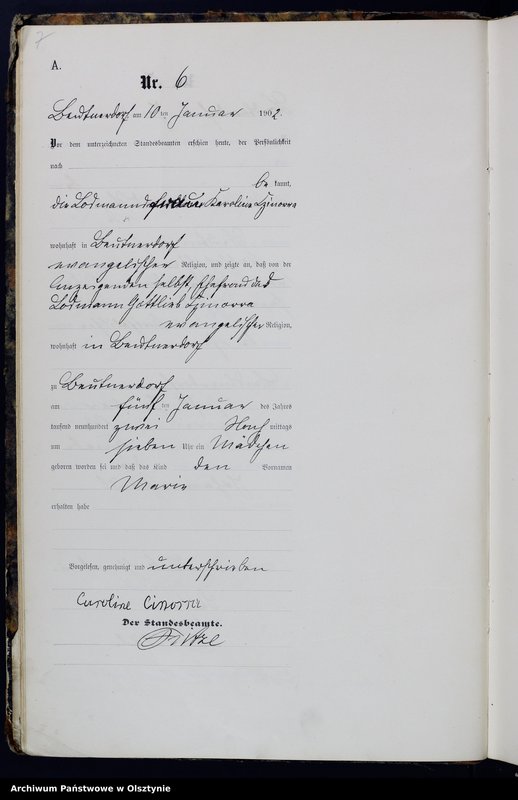 7
A.
Nr. 6
Beutnerdorf am 10 ten Januar 1902.
Vor dem unterzeichneten Standesbeamten erschien heute, der Persönlichkeit
nach
be kannt,
die Losmannsfrau Karoline Czinorra
wohnhaft in Beutnerdorf
evangelischer Religion, und zeigte an, daß von der
Anzeigenden selbst, Ehefrau des
Losmann Gottlieb Czinorra
evangelischer Religion,
wohnhaft in Beutnerdorf
zu Beutnerdorf
am fünf ten Januar des Jahres
tausend neunhundert zwei Nach mittags
um sieben Uhr ein Mädchen
geboren worden sei und daß das Kind den Vornamen
Marie
erhalten habe
Vorgelesen, genehmigt und unterschrieben
Caroline Cinorra
Der Standesbeamte.
Archiwum Państwowe w Olsztynie